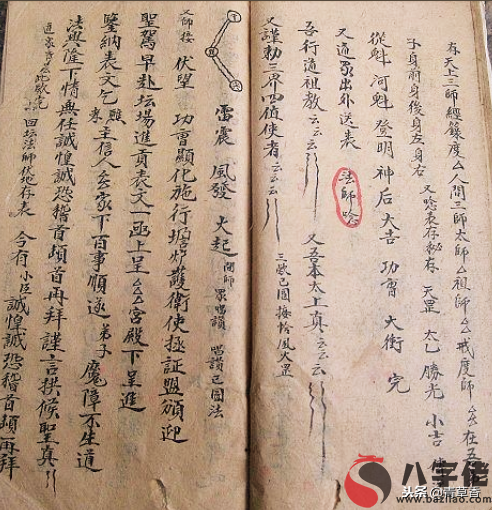 存天上三師經籙度厶人間三師太師厶祖師厶戒度師厶在吾
子身前身後身左身右 又唸表存秘存 天罡 太乙 勝光 小吉
從魁 河魁 登明 神后 大吉 功曹 大衝 完
又通 出外送表 法師唸
吾行道祖教云云云 又吾本太上真云云云
又謹勅三界四值使者云云云 三獻已圓接 風火罡
雷震 風發 火起
又師接 伏望 功曹顯化施行壇炉護衛使 証盟頒迎
聖駕早赴坛場進貢表文一函上呈厶厶宮殿下呈進
鑒納表文乞照 主信人厶家下百事順遂弟子魔障不生道
法興隆下情無任誠惶誠恐稽首頓首再拜謹言拱候聖真
回坛法師 存表 今有小臣誠惶誠恐稽首頓首再拜
八字佬
头条@
www.bazilao.com